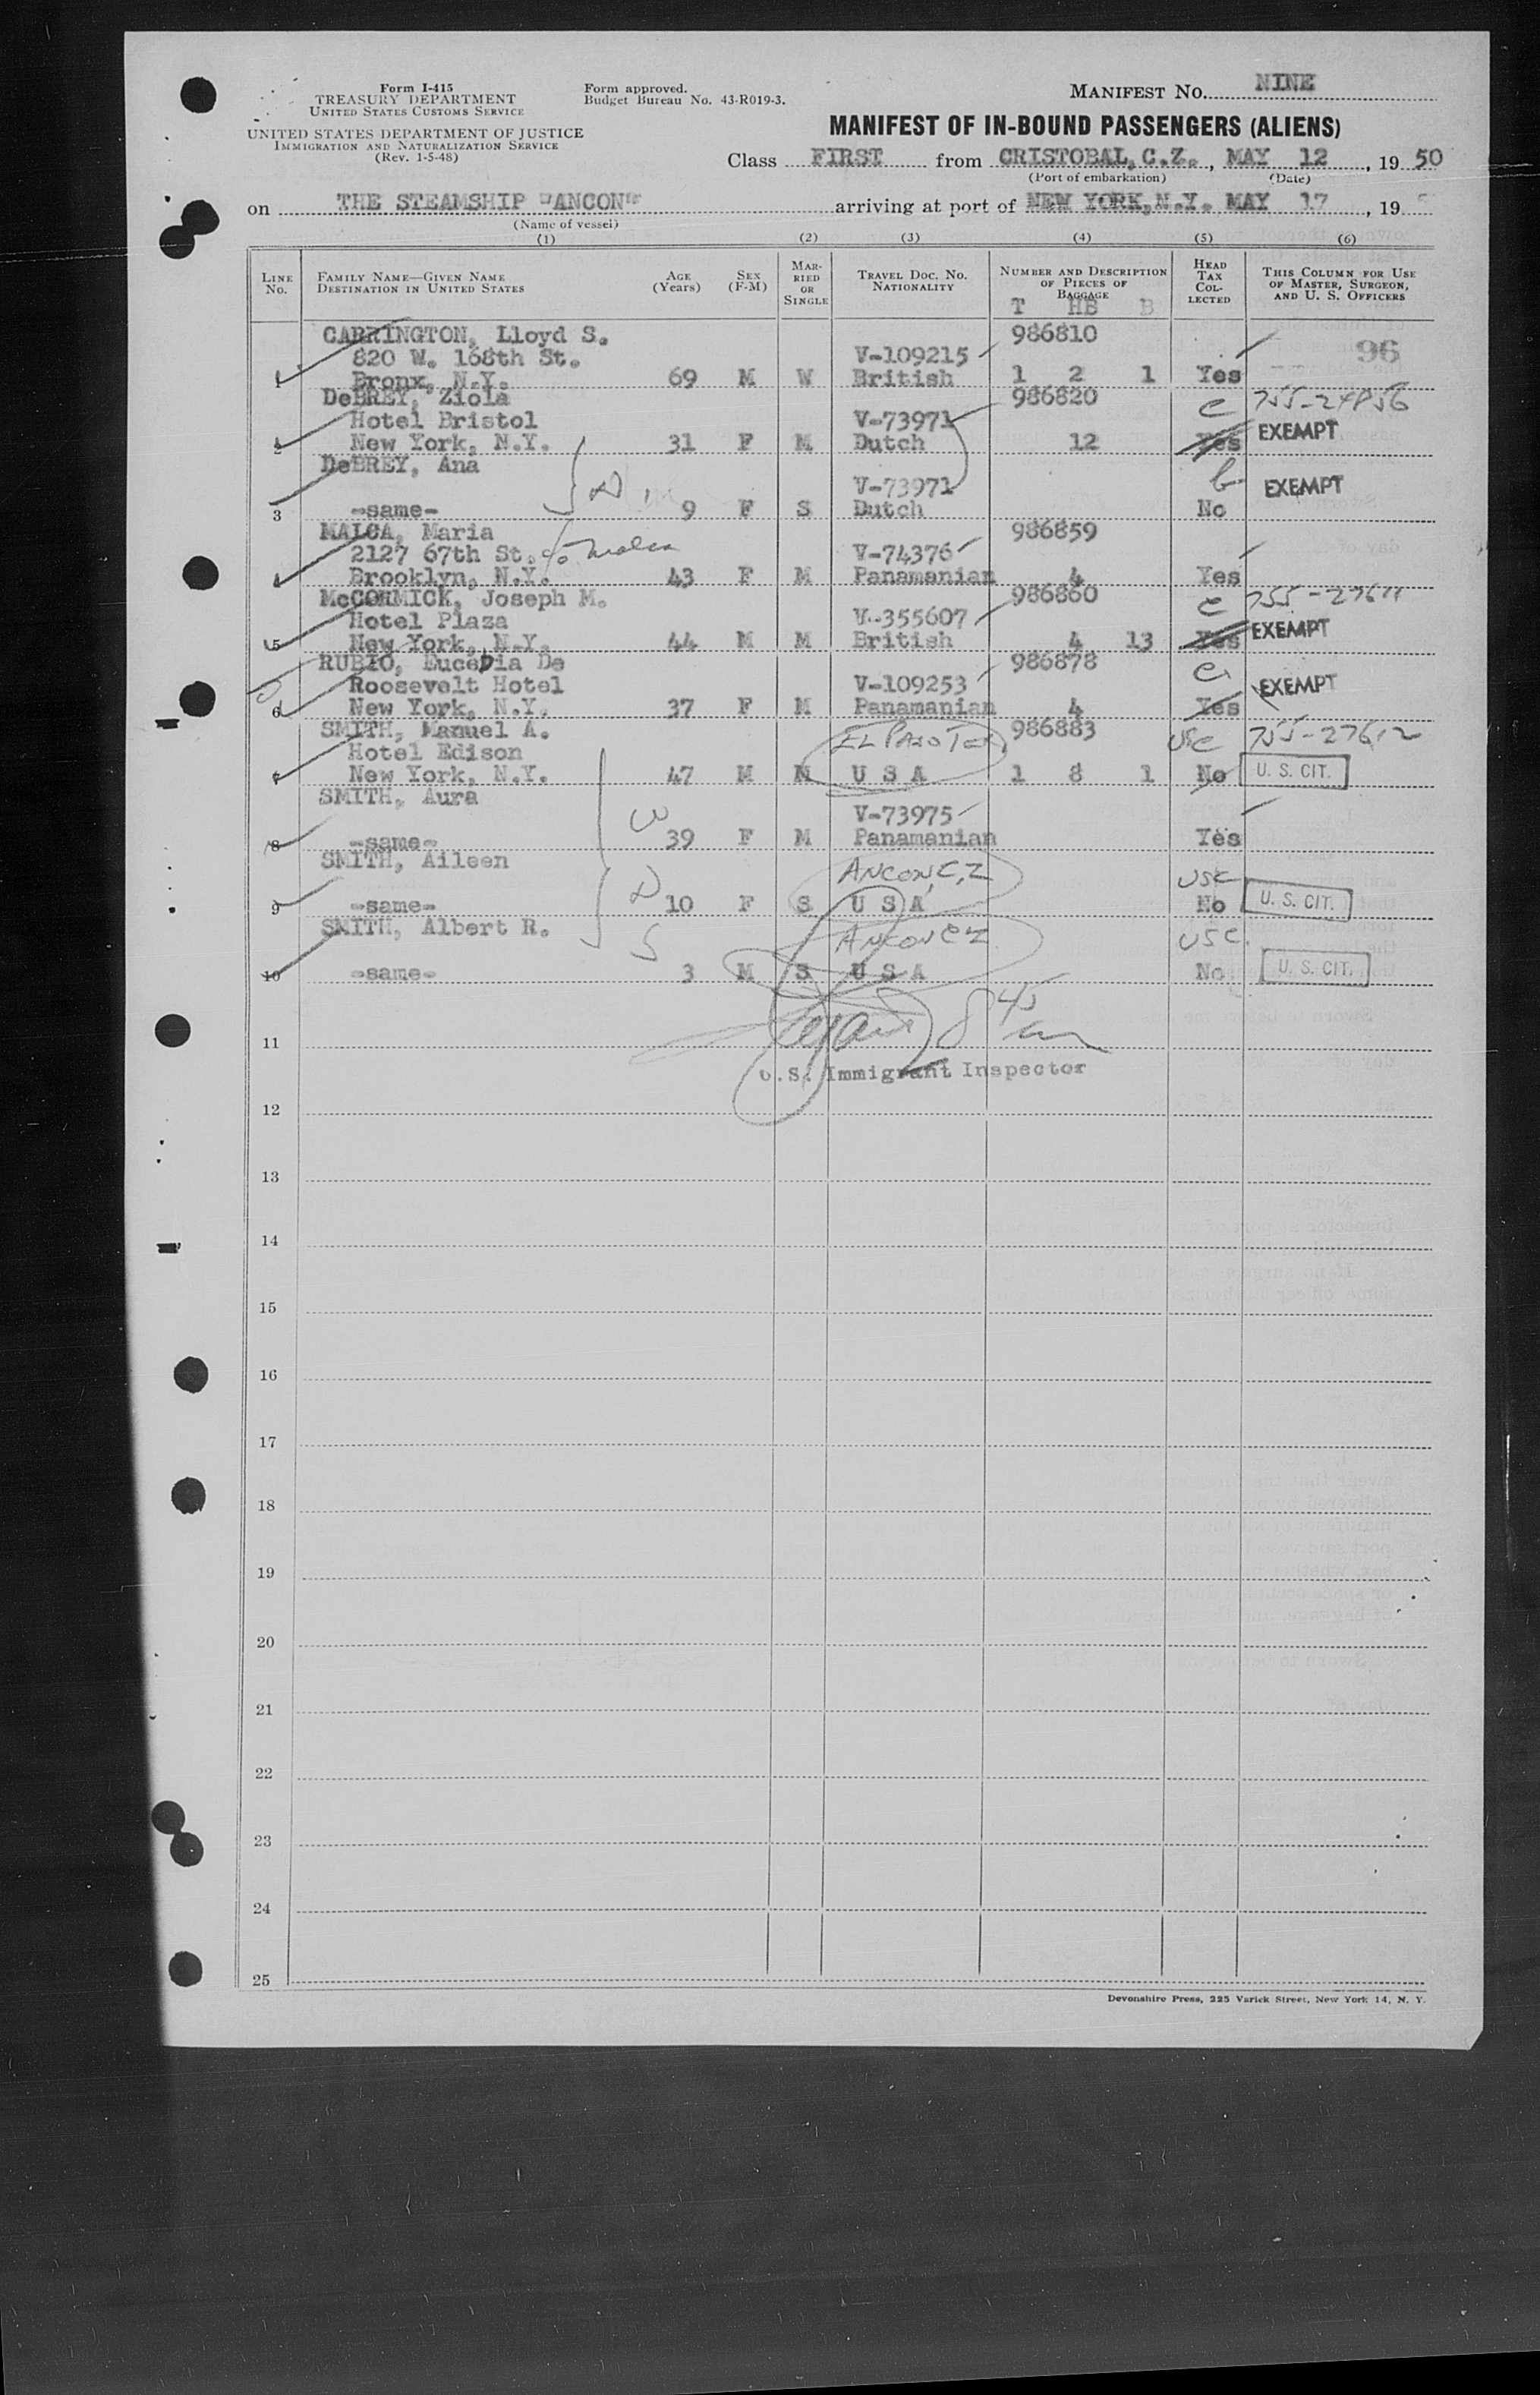 Form I-415
TREASURY DEPARTMENT
UNITED STATES CUSTOMS SERVICE
UNITED STATES DEPARTMENT OF JUSTICE
IMMIGRATION AND NATURALIZATION SERVICE
(Rev. 1-5-48)
Form approved.
Budget Bureau No. 43-R019-3.
MANIFEST NO. NINE
MANIFEST OF IN-BOUND PASSENGERS (ALIENS)
Class FIRST from CRISTOBAL, C.Z., MAY 12, 19 50
(Port of embarkation) (Date)
on THE STEAMSHIP "ANCON" arriving at port of NEW YORK, N.Y. MAY 17, 19
(Name of vessel)
(1) (2) (3) (4) (5) (6)
LINE NO. FAMILY NAME—GIVEN NAME DESTINATION IN UNITED STATES AGE (Years) SEX (F-M) MARRIED OR SINGLE TRAVEL DOC. NO. NATIONALITY NUMBER AND DESCRIPTION OF PIECES OF BAGGAGE HEAD TAX COLLECTED THIS COLUMN FOR USE OF MASTER, SURGEON, AND U. S. OFFICERS
T HB B
CARRINGTON, Lloyd S. 986810
820 W. 168th St. V-109215 96
1 Bronx, N.Y. 69 M W British 1 2 1 Yes
DeBREY, Ziola 986820 c
Hotel Bristol V-73971
2 New York, N.Y. 31 F M Dutch 12 Yes EXEMPT
DeBREY, Ana b
V-73971 EXEMPT
3 -same- 9 F S Dutch No
D
MALCA, Maria 986859
2127 67th St. c/o Malca V-74376
4 Brooklyn, N.Y. 43 F M Panamanian 4 Yes
McCORMICK, Joseph M. 986860 c 755-27611
Hotel Plaza V-355607
5 New York, N.Y. 44 M M British 4 13 Yes EXEMPT
RUBIO, Eucedia De 986878 c
Roosevelt Hotel V-109253 EXEMPT
6 New York, N.Y. 37 F M Panamanian 4 Yes
SMITH, Manuel A. EL PASO TEX 986883 USC 755-27612
Hotel Edison
7 New York, N.Y. 47 M M U S A 1 8 1 No U. S. CIT.
SMITH, Aura
W V-73975
8 -same- 39 F M Panamanian Yes
SMITH, Aileen ANCON, C.Z USC
9 -same- D 10 F S U S A No U. S. CIT.
SMITH, Albert R. ANCON CZ USC
10 -same- S 3 M S U S A No U. S. CIT.
11 8 45
U.S. Immigrant Inspector
12
13
14
15
16
17
18
19
20
21
22
23
24
25
Devonshire Press, 225 Varick Street, New York 14, N. Y.